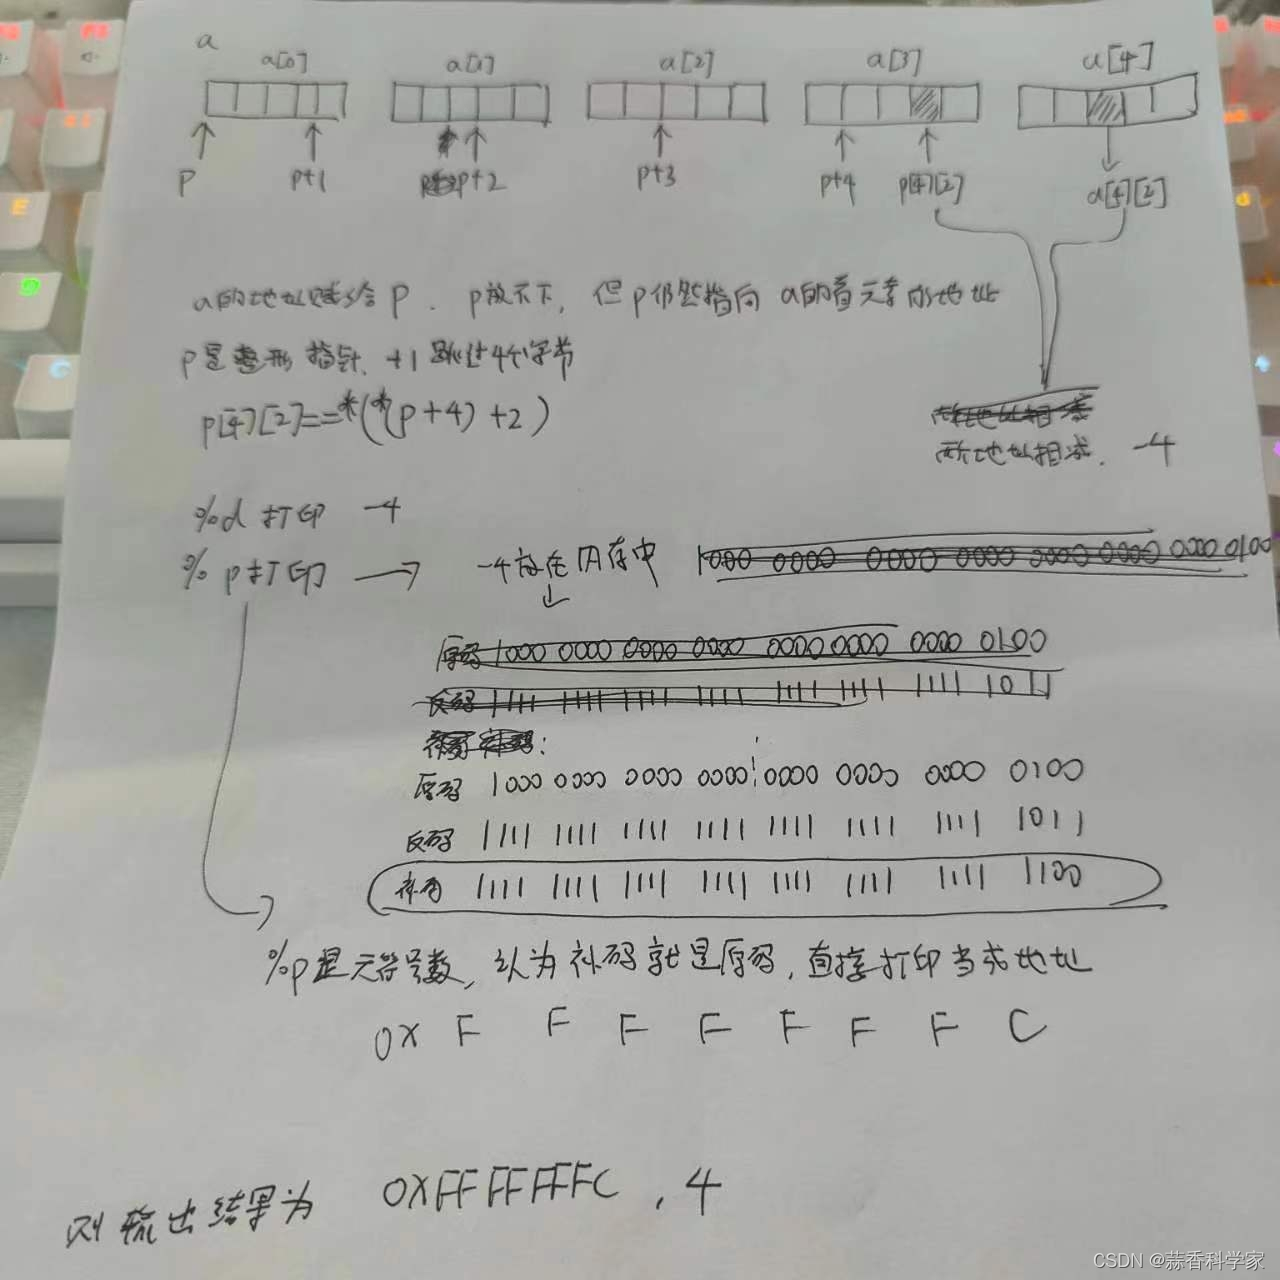 a
a[0] a[1] a[2] a[3] a[4]
p p+1 p+2 p+3 p+4 p[4][2] a[4][2]
a的地址赋给p. p放不下, 但p仍然指向a的首元素的地址
p是整形指针、+1跳过4个字节
p[4][2]==*(*(p+4)+2)
两地址相减. -4
%d 打印 -4
%p打印 → -4放在内存中
1000 0000 0000 0000 0000 0000 0000 0100
原码 1000 0000 0000 0000 0000 0000 0000 0100
反码 1111 1111 1111 1111 1111 1111 1111 1011
原码 1000 0000 0000 0000 0000 0000 0000 0100
反码 1111 1111 1111 1111 1111 1111 1111 1011
补码 1111 1111 1111 1111 1111 1111 1111 1100
%p是无符号数, 认为补码就是原码, 直接打印当成地址
0X F F F F F F F C
则输出结果为 0XFFFFFFFC , 4
CSDN @蒜香科学家